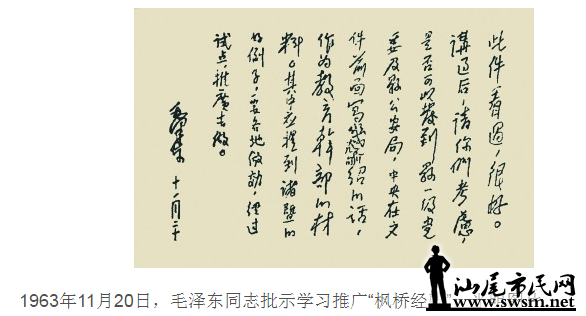 此件看过，很好。
讲过后，请你们考虑，
是否可以发到县一级党
委及县公安局，中央在文
件前面写几句介绍的话，
作为教育干部的材
料。其中应提到诸暨的
好例子，要各地仿效，经过
试点，推广去做。
毛泽东
十一月二十
1963年11月20日，毛泽东同志批示学习推广“枫桥经
汕尾市民网
www.swsm.net